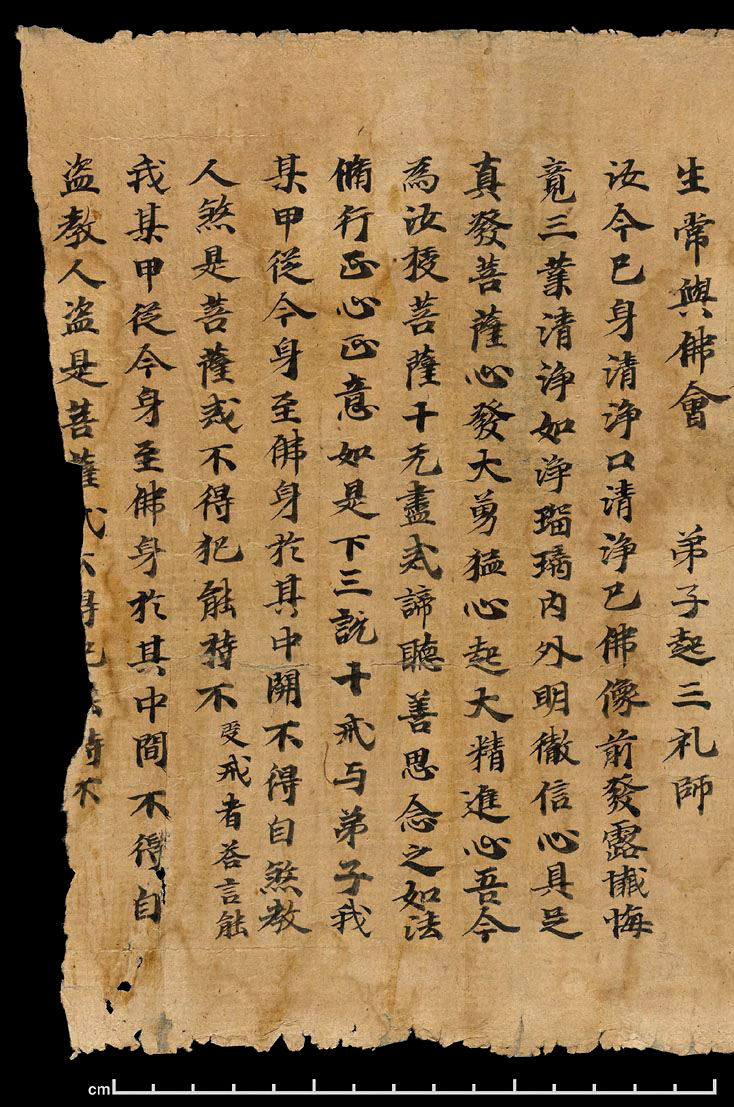 生常與佛會　弟子起三礼師
汝今已身清淨口清淨已佛像前發露懴悔
竟三業清淨如淨瑠璃內外明徹信心具足
真發菩薩心發大勇猛心起大精進心吾今
為汝授菩薩十无盡戒諦聽善思念之如法
脩行正心正意如是下三說十戒与弟子我
某甲從今身至佛身於其中開不得自煞教
人煞是菩薩戒不得犯能持不受戒者荅言能
我某甲從今身至佛身於其中間不得自
盗教人盗是菩薩戒不得犯能持不
cm